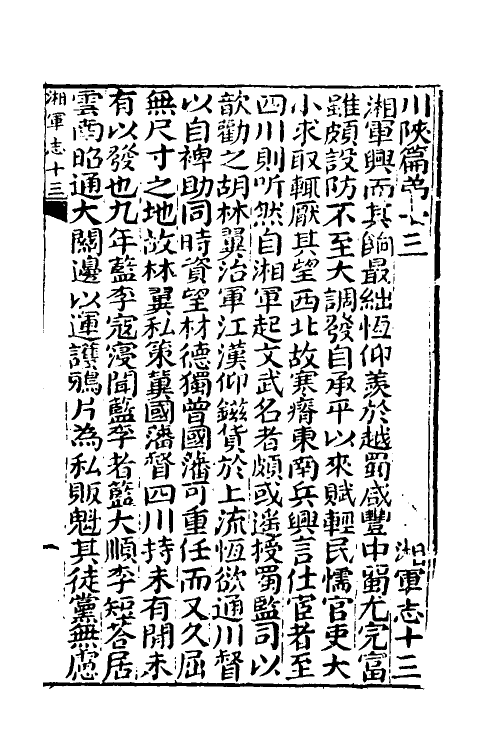 川陝篇弟十三
湘軍志十三
湘軍興而其餉最絀恆仰羨於越蜀咸豐中蜀尤完富
雖頗設防不至大調發自承平以來賦輕民懦官吏大
小求取輒厭其望西北故寒瘠東南兵興言仕宦者至
四川則听然自湘軍起文武名者頗或遥授蜀監司以
歆勸之胡林翼治軍江漢仰鎡貨於上流恆欲通川督
以自裨助同時資望材德獨曾國藩可重任而又久屈
無尺寸之地故林翼私策冀國藩督四川持未有閒未
有以發也九年藍李寇寖聞藍李者藍大順李短荅居
雲南昭通大關邊以運護鴉片為私販魁其徒黨無慮
湘軍志十三
一